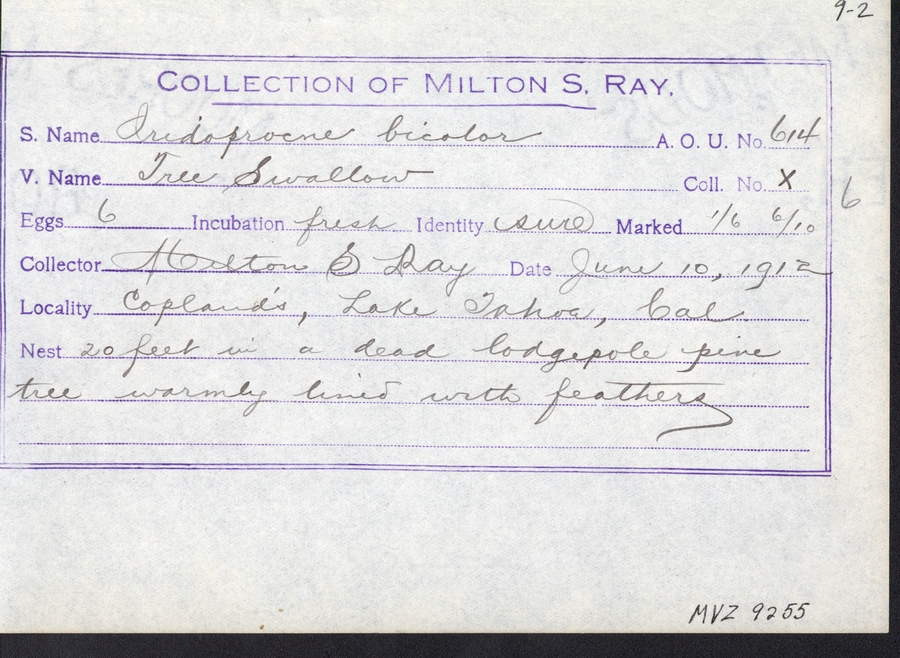 9-2
COLLECTION OF MILTON S. RAY.
S. Name Iridoprocne bicolor A. O. U. No. 614
V. Name Tree Swallow Coll. No. X 6
Eggs 6 Incubation fresh Identity sure Marked 1/6 6/10
Collector Milton S Ray Date June 10, 1912
Locality Copland's, Lake Tahoe, Cal.
Nest 20 feet in a dead lodgepole pine
tree warmly lined with feathers
MVZ 9255